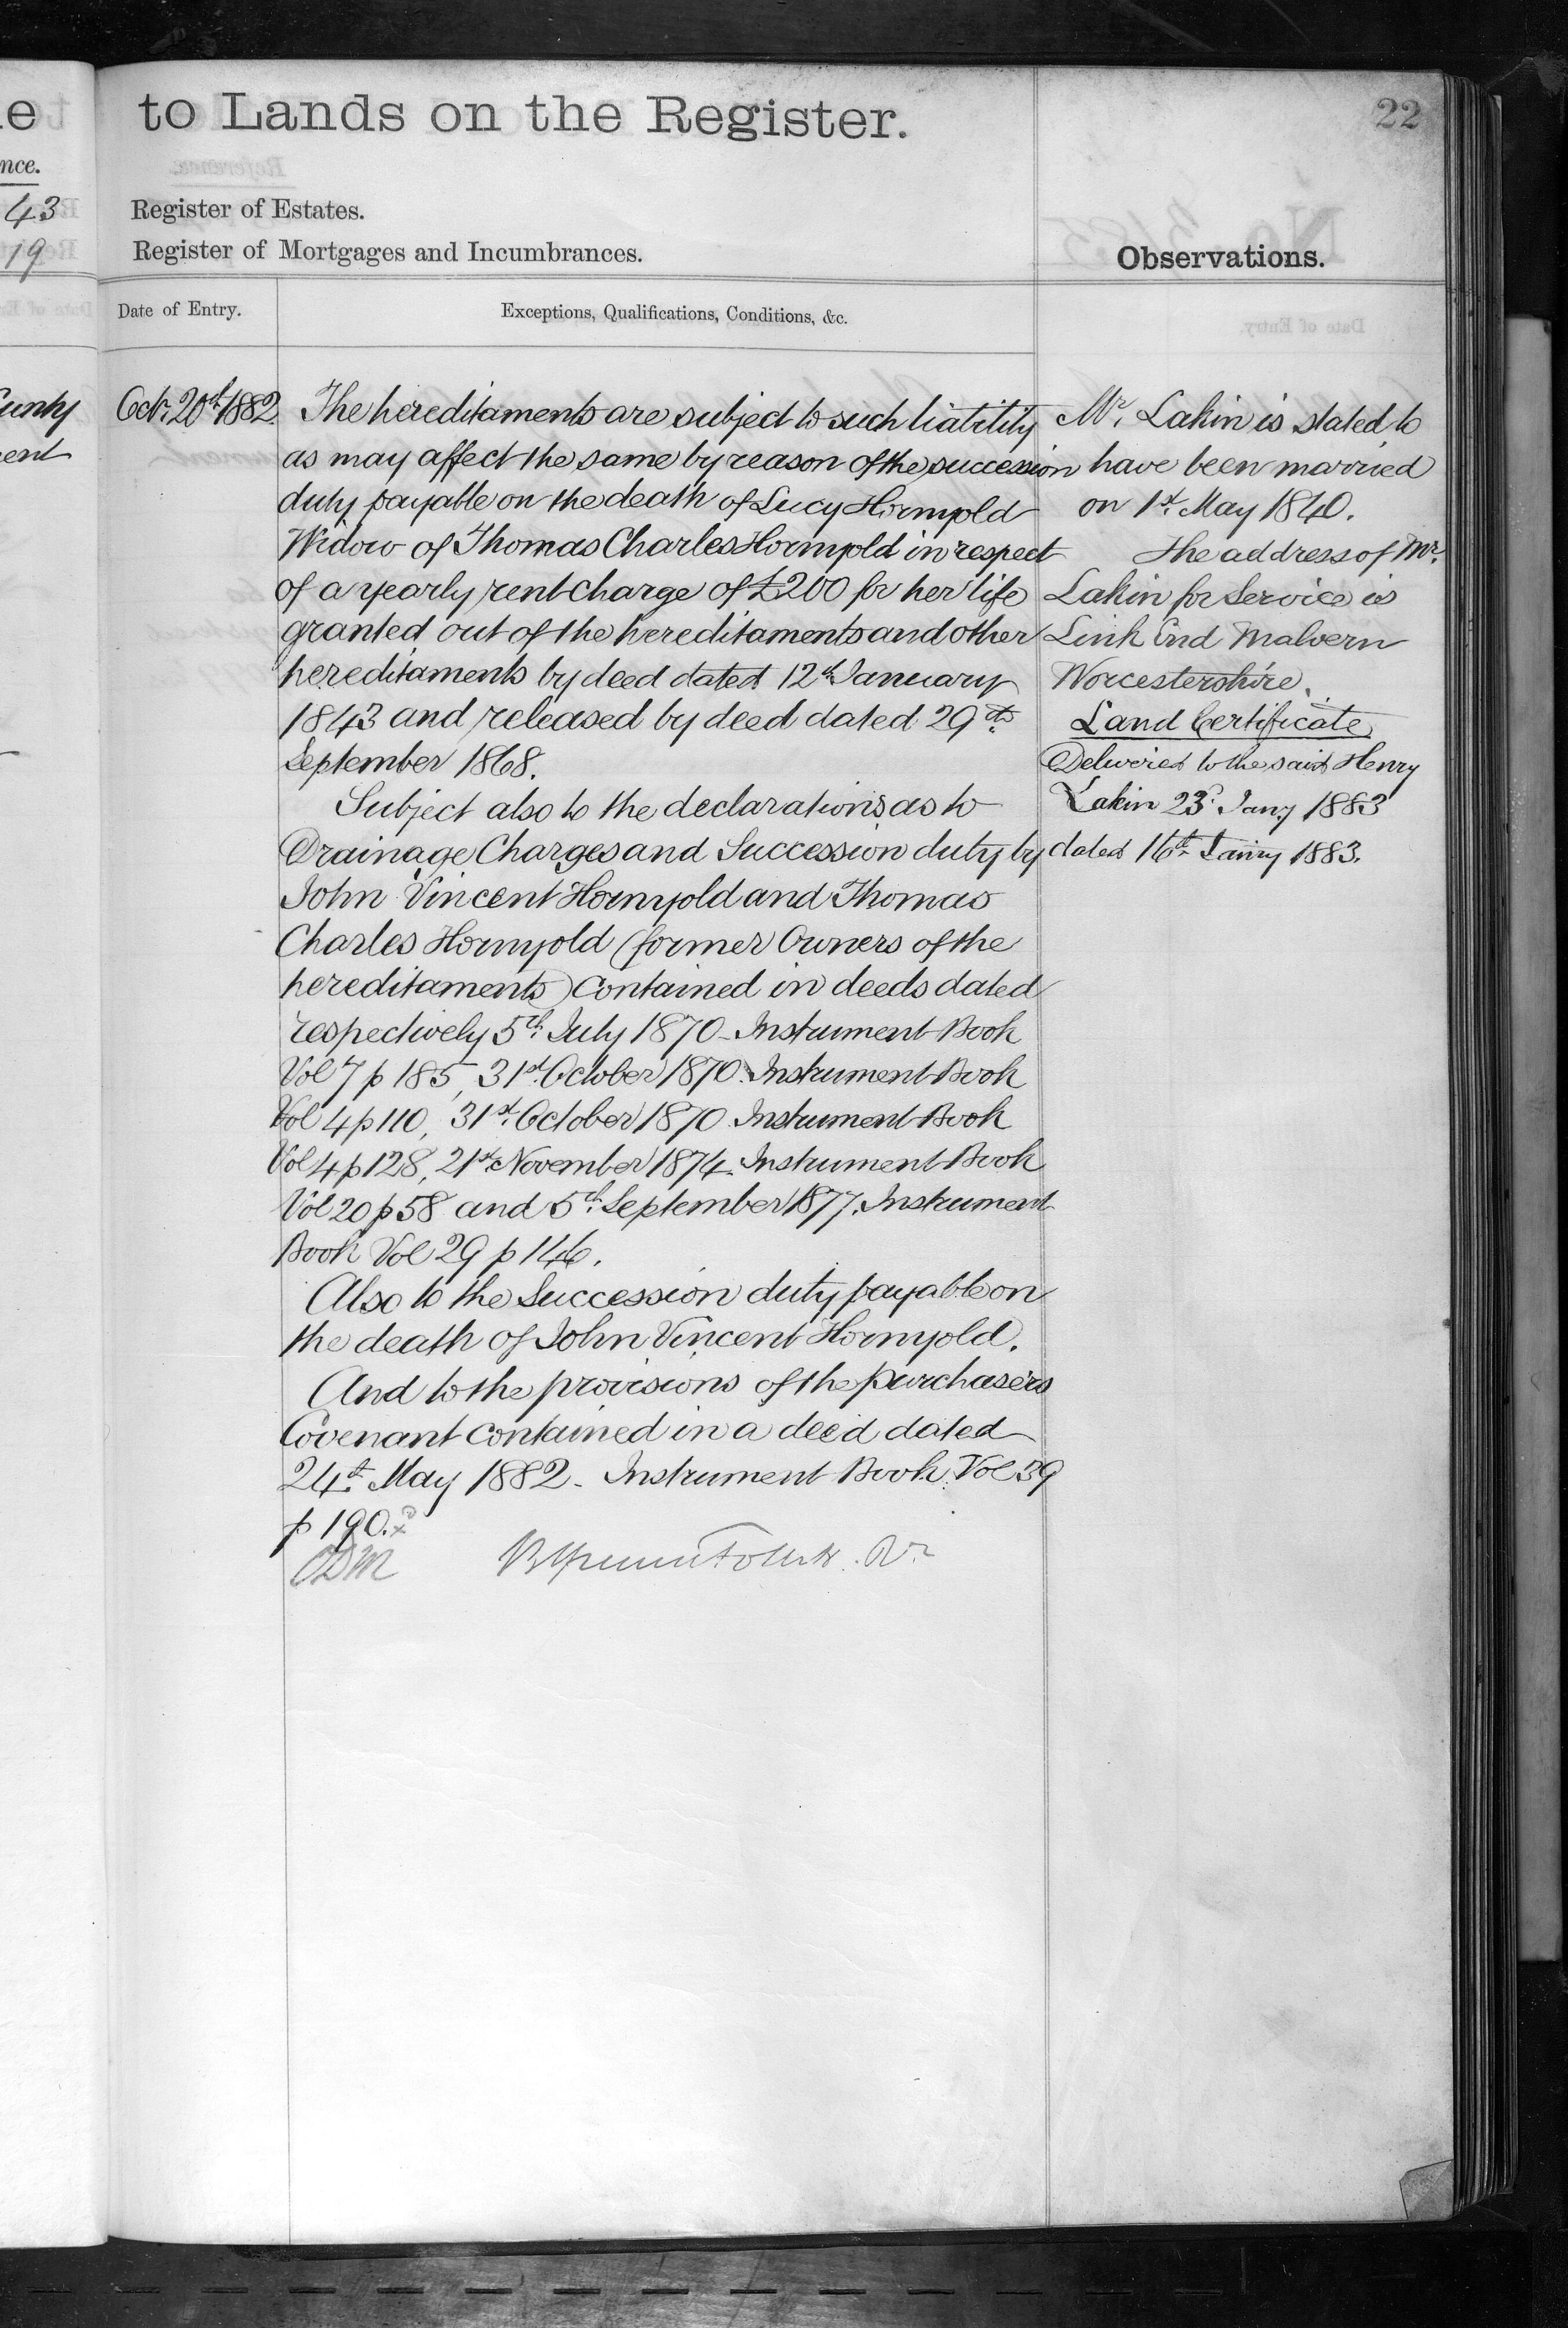 to Lands on the Register.
22
Register of Estates.
Register of Mortgages and Incumbrances.
Observations.
Date of Entry.
Exceptions, Qualifications, Conditions, &c.
nce.
43
19
ent
Oct. 20th 1882.
The hereditaments are subject to such liability
as may affect the same by reason of the succession
duty payable on the death of Lucy Hornyold
Widow of Thomas Charles Hornyold in respect
of a yearly rent charge of £200 for her life
granted out of the hereditaments and other
hereditaments by deed dated 12th January
1843 and released by deed dated 29th
September 1868.
Subject also to the declarations as to
Drainage Charges and Succession duty by
John Vincent Hornyold and Thomas
Charles Hornyold (former Owners of the
hereditaments) contained in deeds dated
respectively 5th July 1870 - Instrument Book
Vol 7 p 185, 31st October 1870. Instrument Book
Vol 4 p 110, 31st October 1870. Instrument Book
Vol 4 p 128, 21st November 1874. Instrument Book
Vol 20 p 58 and 5th September 1877. Instrument
Book Vol 29 p 146.
Also to the Succession duty payable on
the death of John Vincent Hornyold.
And to the provisions of the purchasers
Covenant contained in a deed dated
24th May 1882 - Instrument Book Vol 39
p 190.
Mr. Lakin is stated to
have been married
on 1st May 1840.
The address of Mr.
Lakin for Service is
Link End Malvern
Worcestershire.
Land Certificate
Delivered to the said Henry
Lakin 23d Jany 1883
dated 16th Jany 1883.